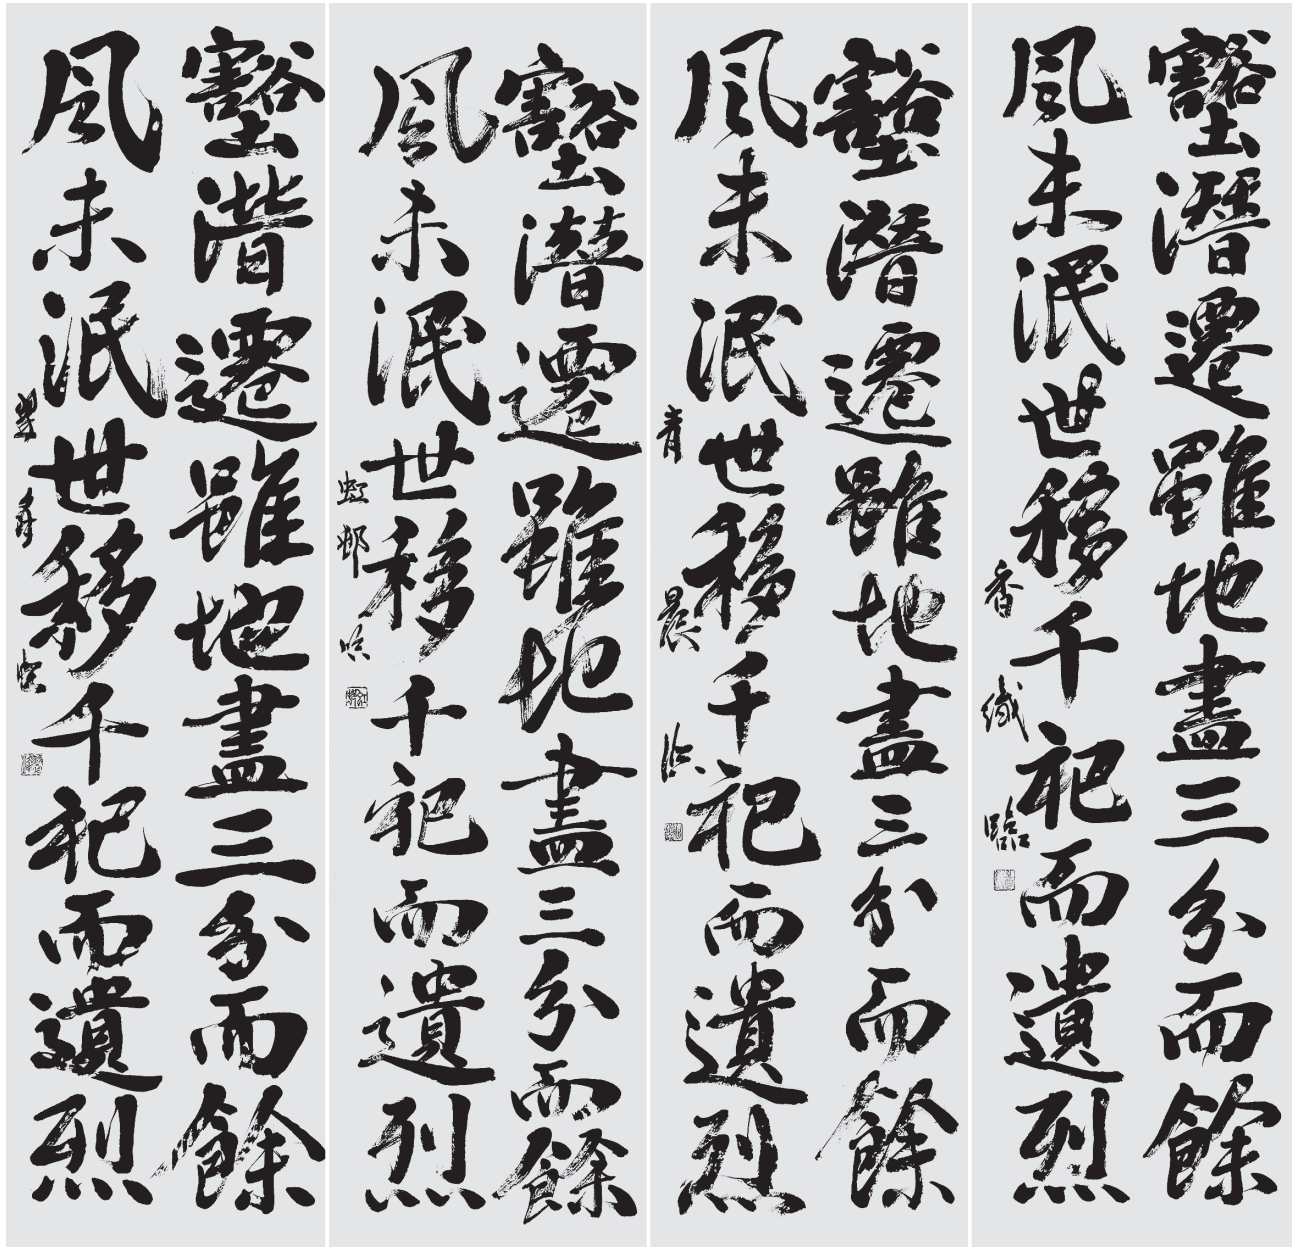 壑潛遷雖地盡三分而餘
風未泯世移千祀而遺烈
香織臨
壑潛遷雖地盡三分而餘
風未泯世移千祀而遺烈
青晨臨
壑潛遷雖地盡三分而餘
風未泯世移千祀而遺烈
虹邨臨
壑潛遷雖地盡三分而餘
風未泯世移千祀而遺烈
臨